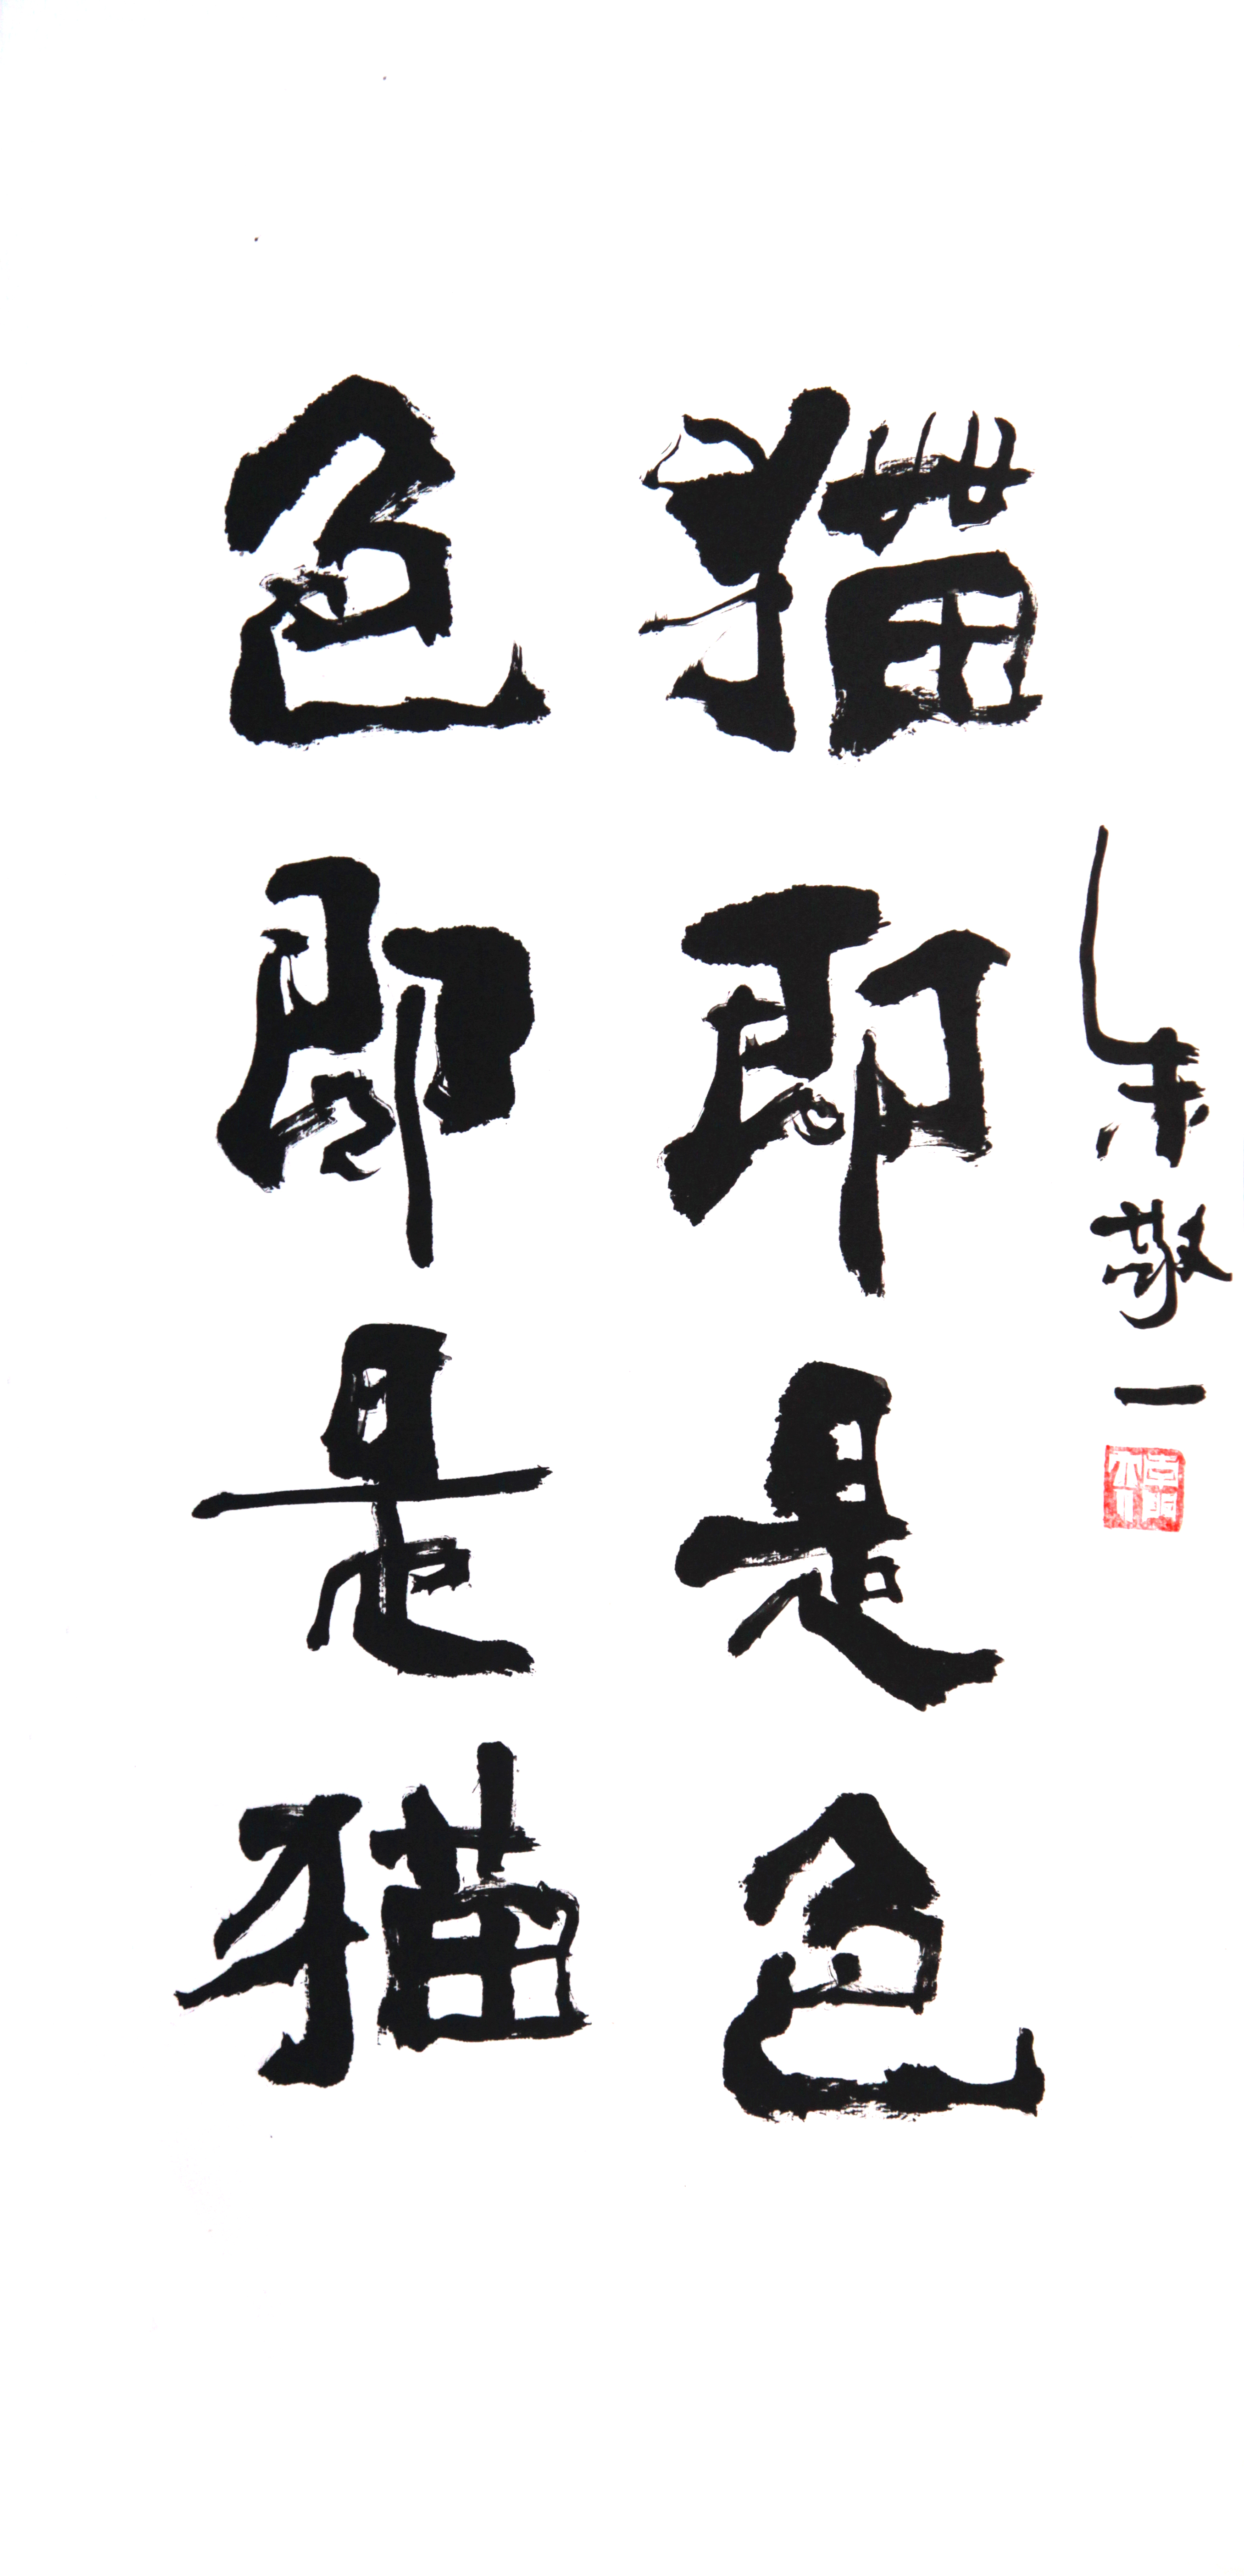 猫即是色
色即是猫
朱敬一